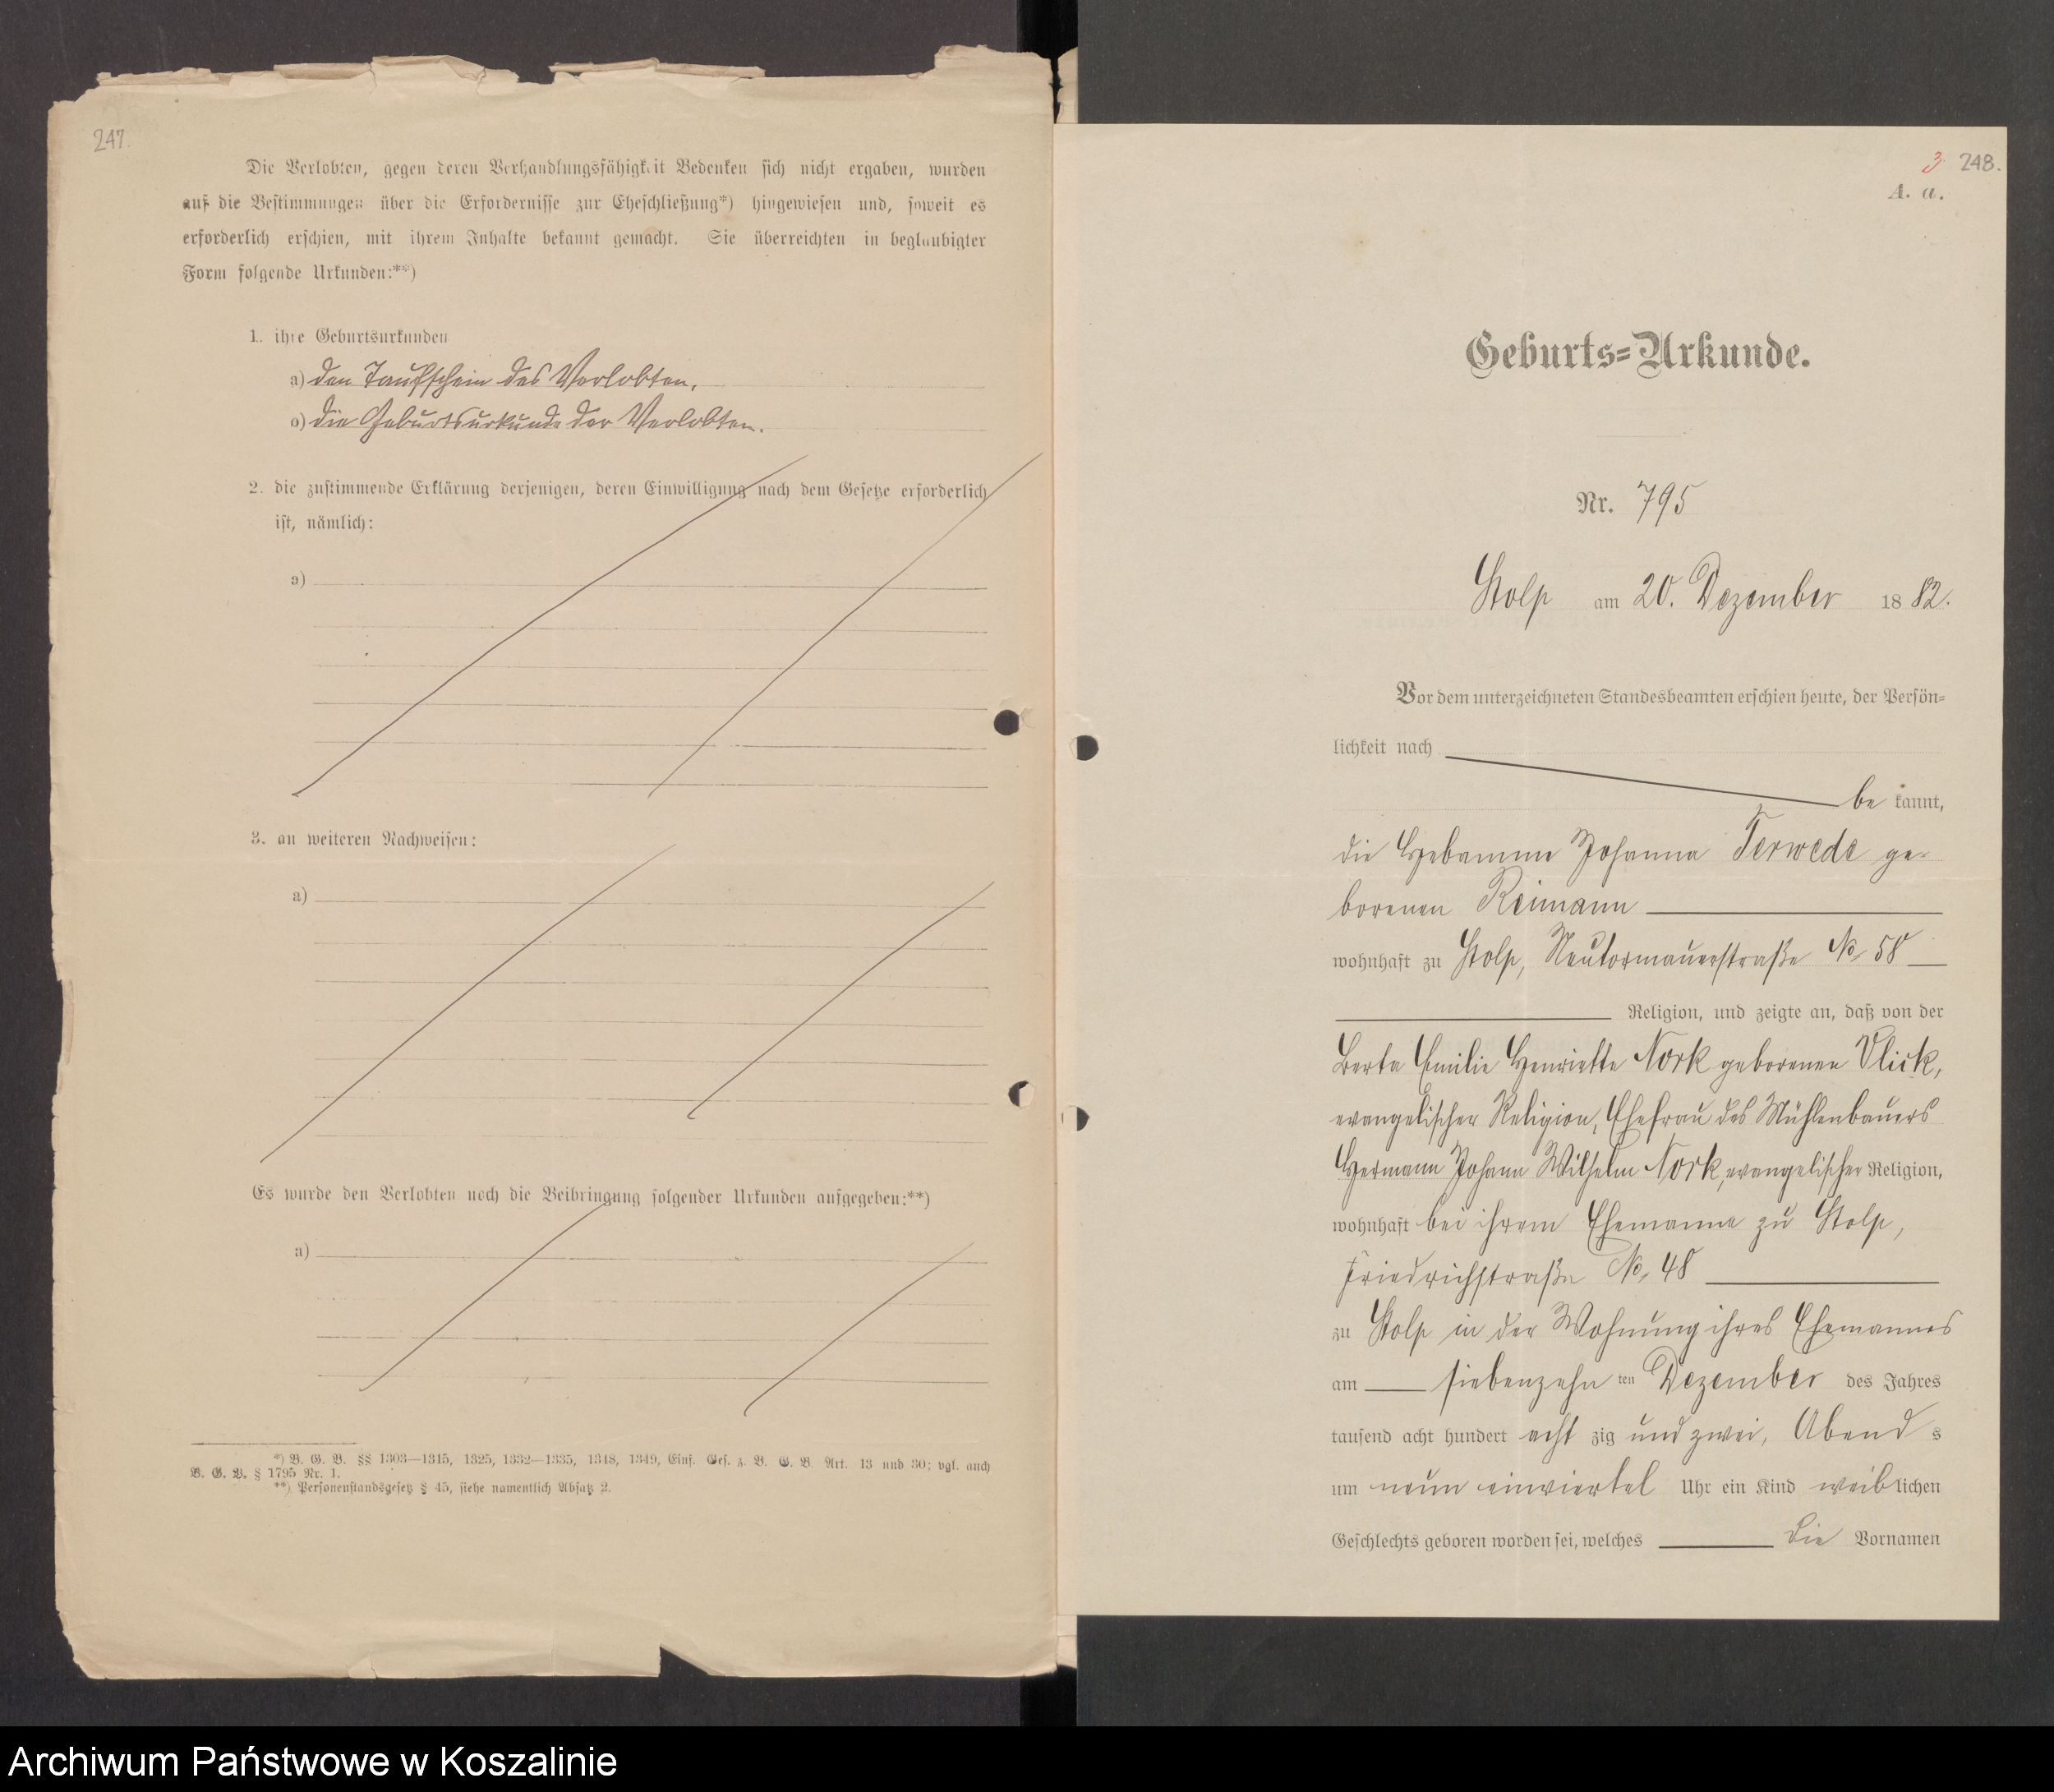 247.
Die Verlobten, gegen deren Verhandlungsfähigkeit Bedenken sich nicht ergaben, wurden
auf die Bestimmungen über die Erfordernisse zur Eheschließung*) hingewiesen und, soweit es
erforderlich erschien, mit ihrem Inhalte bekannt gemacht. Sie überreichten in beglaubigter
Form folgende Urkunden:**)
1. ihre Geburtsurkunden
a) den Taufschein des Verlobten.
b) die Geburtsurkunde der Verlobten.
2. die zustimmende Erklärung derjenigen, deren Einwilligung nach dem Gesetze erforderlich
ist, nämlich:
a)
3. an weiteren Nachweisen:
a)
Es wurde den Verlobten noch die Beibringung folgender Urkunden aufgegeben:**)
a)
*) B. G. B. §§ 1303—1315, 1325, 1332—1335, 1348, 1349, Einf. Ges. z. B. G. B. Art. 13 und 30; vgl. auch
B. G. B. § 1795 Nr. 1.
**) Personenstandsgesetz § 45, siehe namentlich Absatz 2.
3. 248.
A. a.
Geburts=Urkunde.
Nr. 795
Stolp am 20. Dezember 1882.
Vor dem unterzeichneten Standesbeamten erschien heute, der Persön=
lichkeit nach
be kannt,
die Hebamme Johanna Terwede ge-
borenen Reimann
wohnhaft zu Stolp, Neutormauerstraße No 58
Religion, und zeigte an, daß von der
Berta Emilie Henriette Nork geborenen Vlick,
evangelischer Religion, Ehefrau des Mühlenbauers
Hermann Johann Wilhelm Nork, evangelischer Religion,
wohnhaft bei ihrem Ehemanne zu Stolp,
Friedrichstraße No. 48
zu Stolp in der Wohnung ihres Ehemannes
am siebenzehn ten Dezember des Jahres
tausend acht hundert acht zig und zwei, Abend s
um neun einviertel Uhr ein Kind weiblichen
Geschlechts geboren worden sei, welches die Vornamen
Archiwum Państwowe w Koszalinie